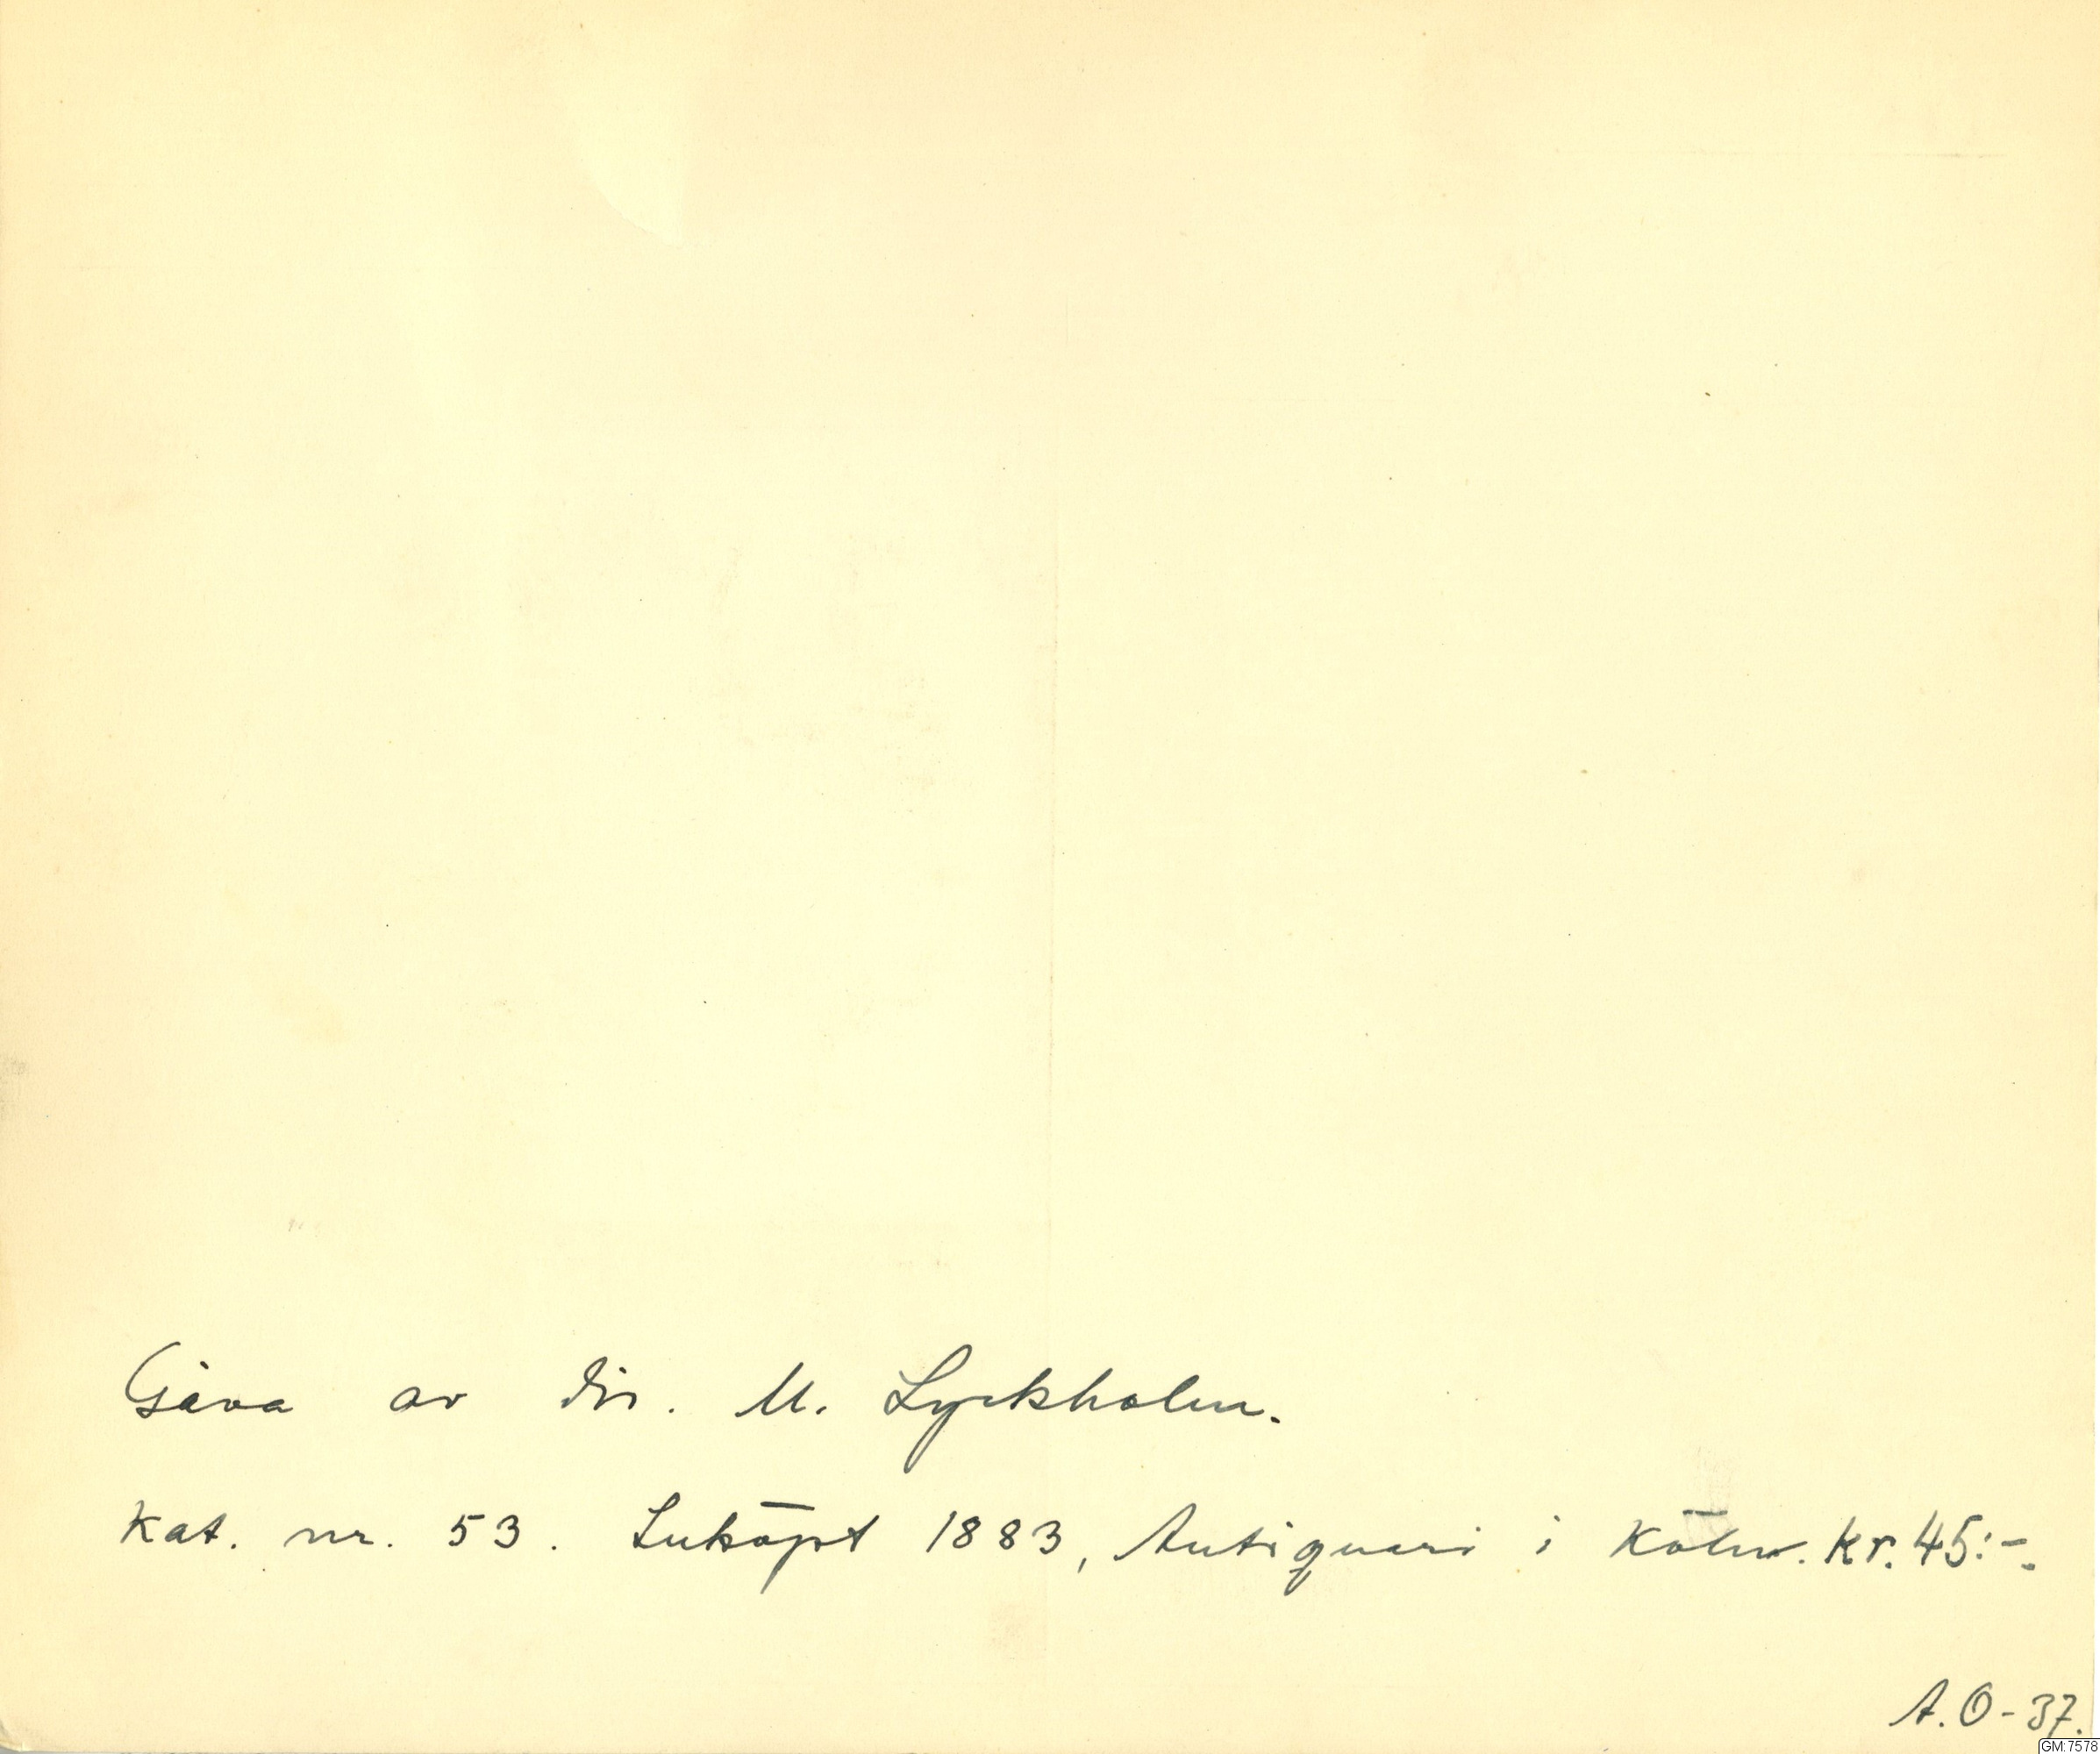 Gåva av dir. M. Lyckholm.
Kat. nr. 53. Inköpt 1883, Antiquari i Köln. Kr. 45:-.
A.O-37.
GM:7578